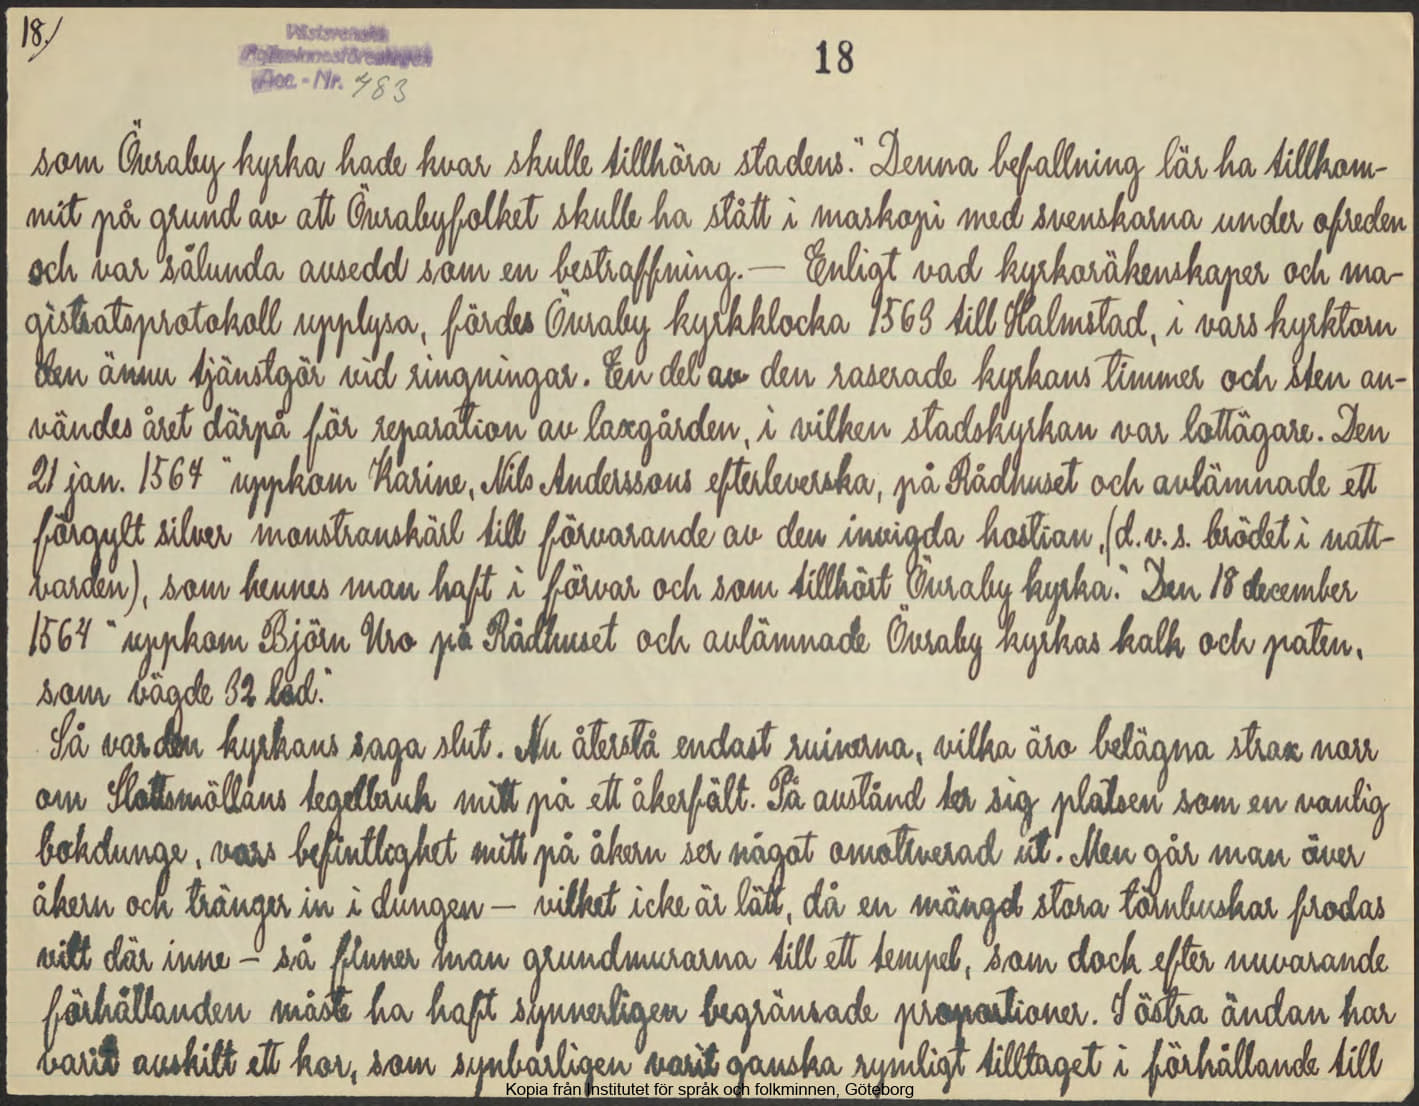 18.)
Västsvenska
Folkminnesföreningen
Acc. - Nr. 783
18
som Övraby kyrka hade kvar skulle tillhöra stadens." Denna befallning lär ha tillkom-
mit på grund av att Övrabyfolket skulle ha stått i maskopi med svenskarna under ofreden
och var sålunda avsedd som en bestraffning. — Enligt vad kyrkoräkenskaper och ma-
gistratsprotokoll upplysa, fördes Övraby kyrkklocka 1563 till Halmstad, i vars kyrktorn
den ännu tjänstgör vid ringningar. En del av den raserade kyrkans timmer och sten an-
vändes året därpå för reparation av laxgården, i vilken stadskyrkan var lottägare. Den
21 jan. 1564 "uppkom Karine, Nils Anderssons efterleverska, på Rådhuset och avlämnade ett
förgylt silver monstranskärl till förvarande av den invigda hostian, (d.v.s. brödet i natt-
varden), som hennes man haft i förvar och som tillhört Övraby kyrka." Den 18 december
1564 "uppkom Björn Uro på Rådhuset och avlämnade Övraby kyrkas kalk och paten,
som vägde 32 lod."
Så var den kyrkans saga slut. Nu återstå endast ruinerna, vilka äro belägna strax norr
om Slottsmöllans tegelbruk mitt på ett åkerfält. På avstånd ter sig platsen som en vanlig
bokdunge, vars befintlighet mitt på åkern ser något omotiverad ut. Men går man över
åkern och tränger in i dungen — vilket icke är lätt, då en mängd stora törnbuskar frodas
vilt där inne — så finner man grundmurarna till ett tempel, som dock efter nuvarande
förhållanden måste ha haft synnerligen begränsade proportioner. I östra ändan har
varit avskilt ett kor, som synbarligen varit ganska rymligt tilltaget i förhållande till
Kopia från Institutet för språk och folkminnen, Göteborg